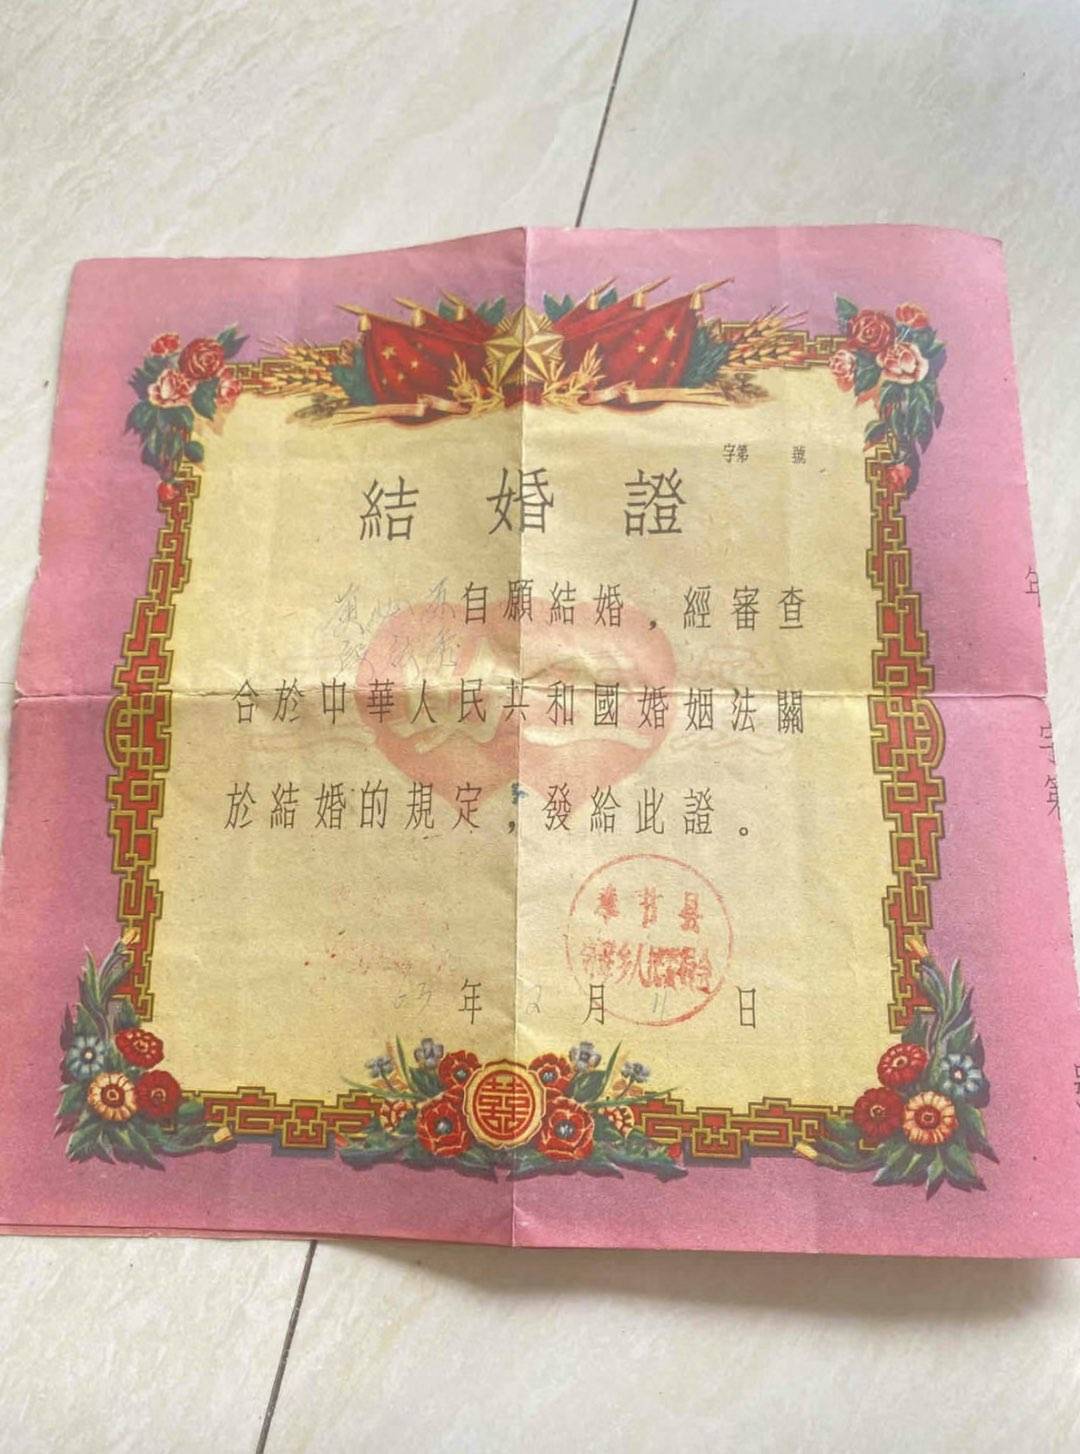 字第 號
結婚證
自願結婚，經審查
合於中華人民共和國婚姻法關
於結婚的規定，發給此證。
奉节县
乡人民委員会
63年2月11日
年
字第